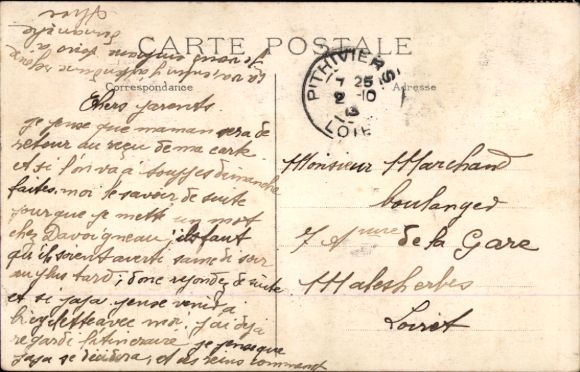 CARTE POSTALE
Correspondance
Adresse
PITHIVIERS
7 25
2 -10
LOIRET
Chers parents.
je pense que maman sera de
retour au reçu de ma carte.
et si l'on va à Souppes dimanche
faites-moi le savoir de suite
pour que je mette un mot
chez Davoigneau, il faut
qu'ils soient averti samedi soir
au plus tard; donc réponse de suite
et si papa pense venir à
bicyclette avec moi, j'ai déjà
regardé l'itineraire, je pense que
papa se décidera, et des reins comment
Je vous embrasse
dimanche
Monsieur Marchand
boulanger
7 Avenue de la Gare
Malesherbes
Loiret